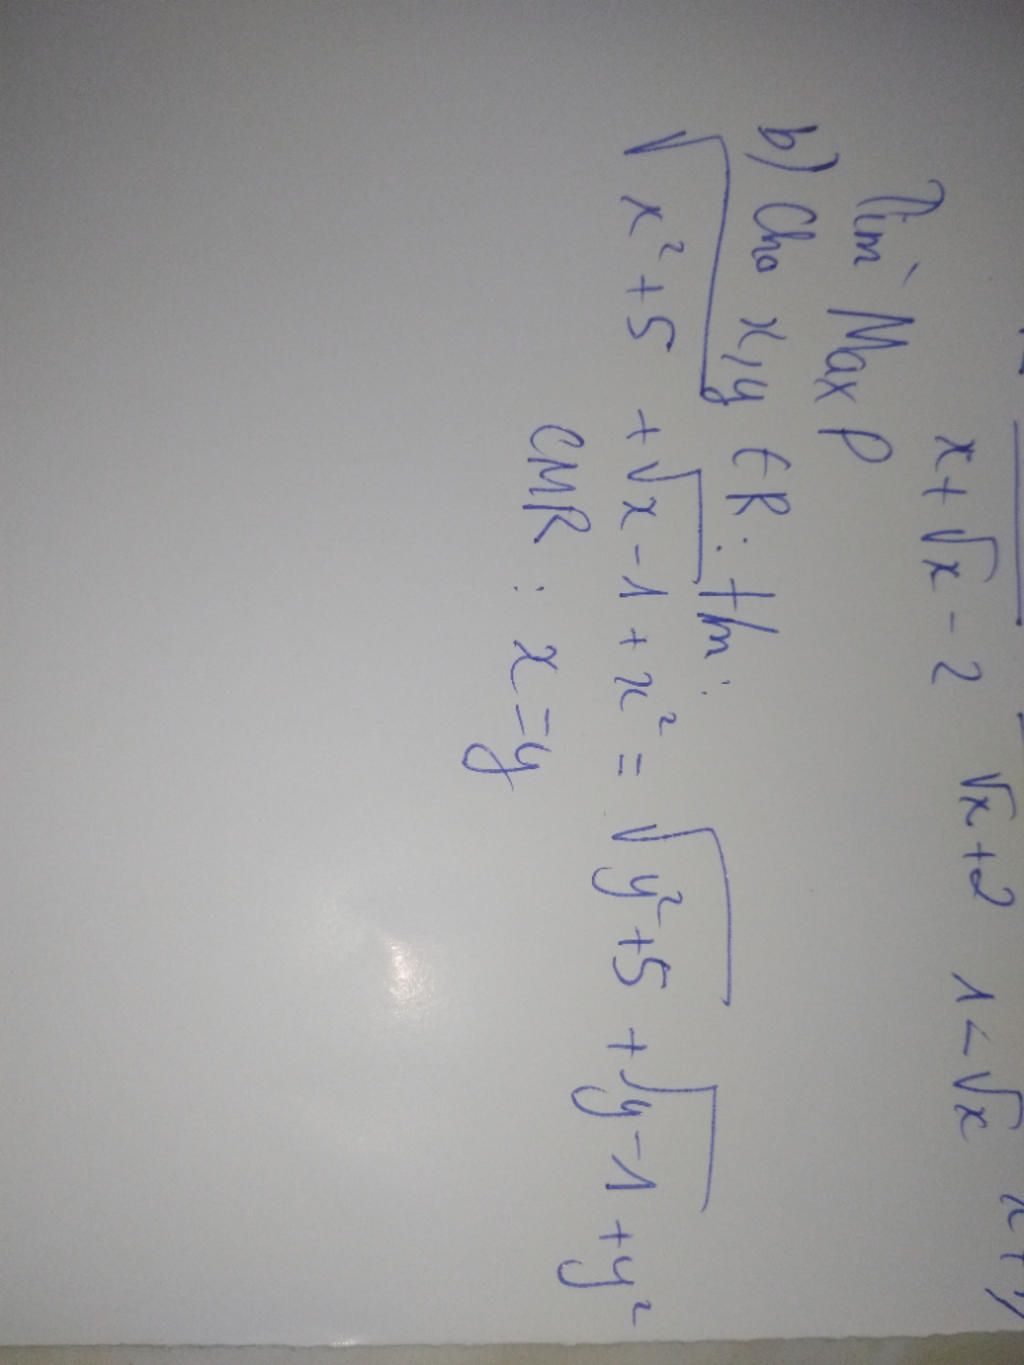 x+√x-2 √x+2 1-√x
Tìm Max P
b) Cho x,y ∈ R: t/m:
√x²+5 + √x-1 + x² = √y²+5 + √y-1 + y²
CMR : x=y